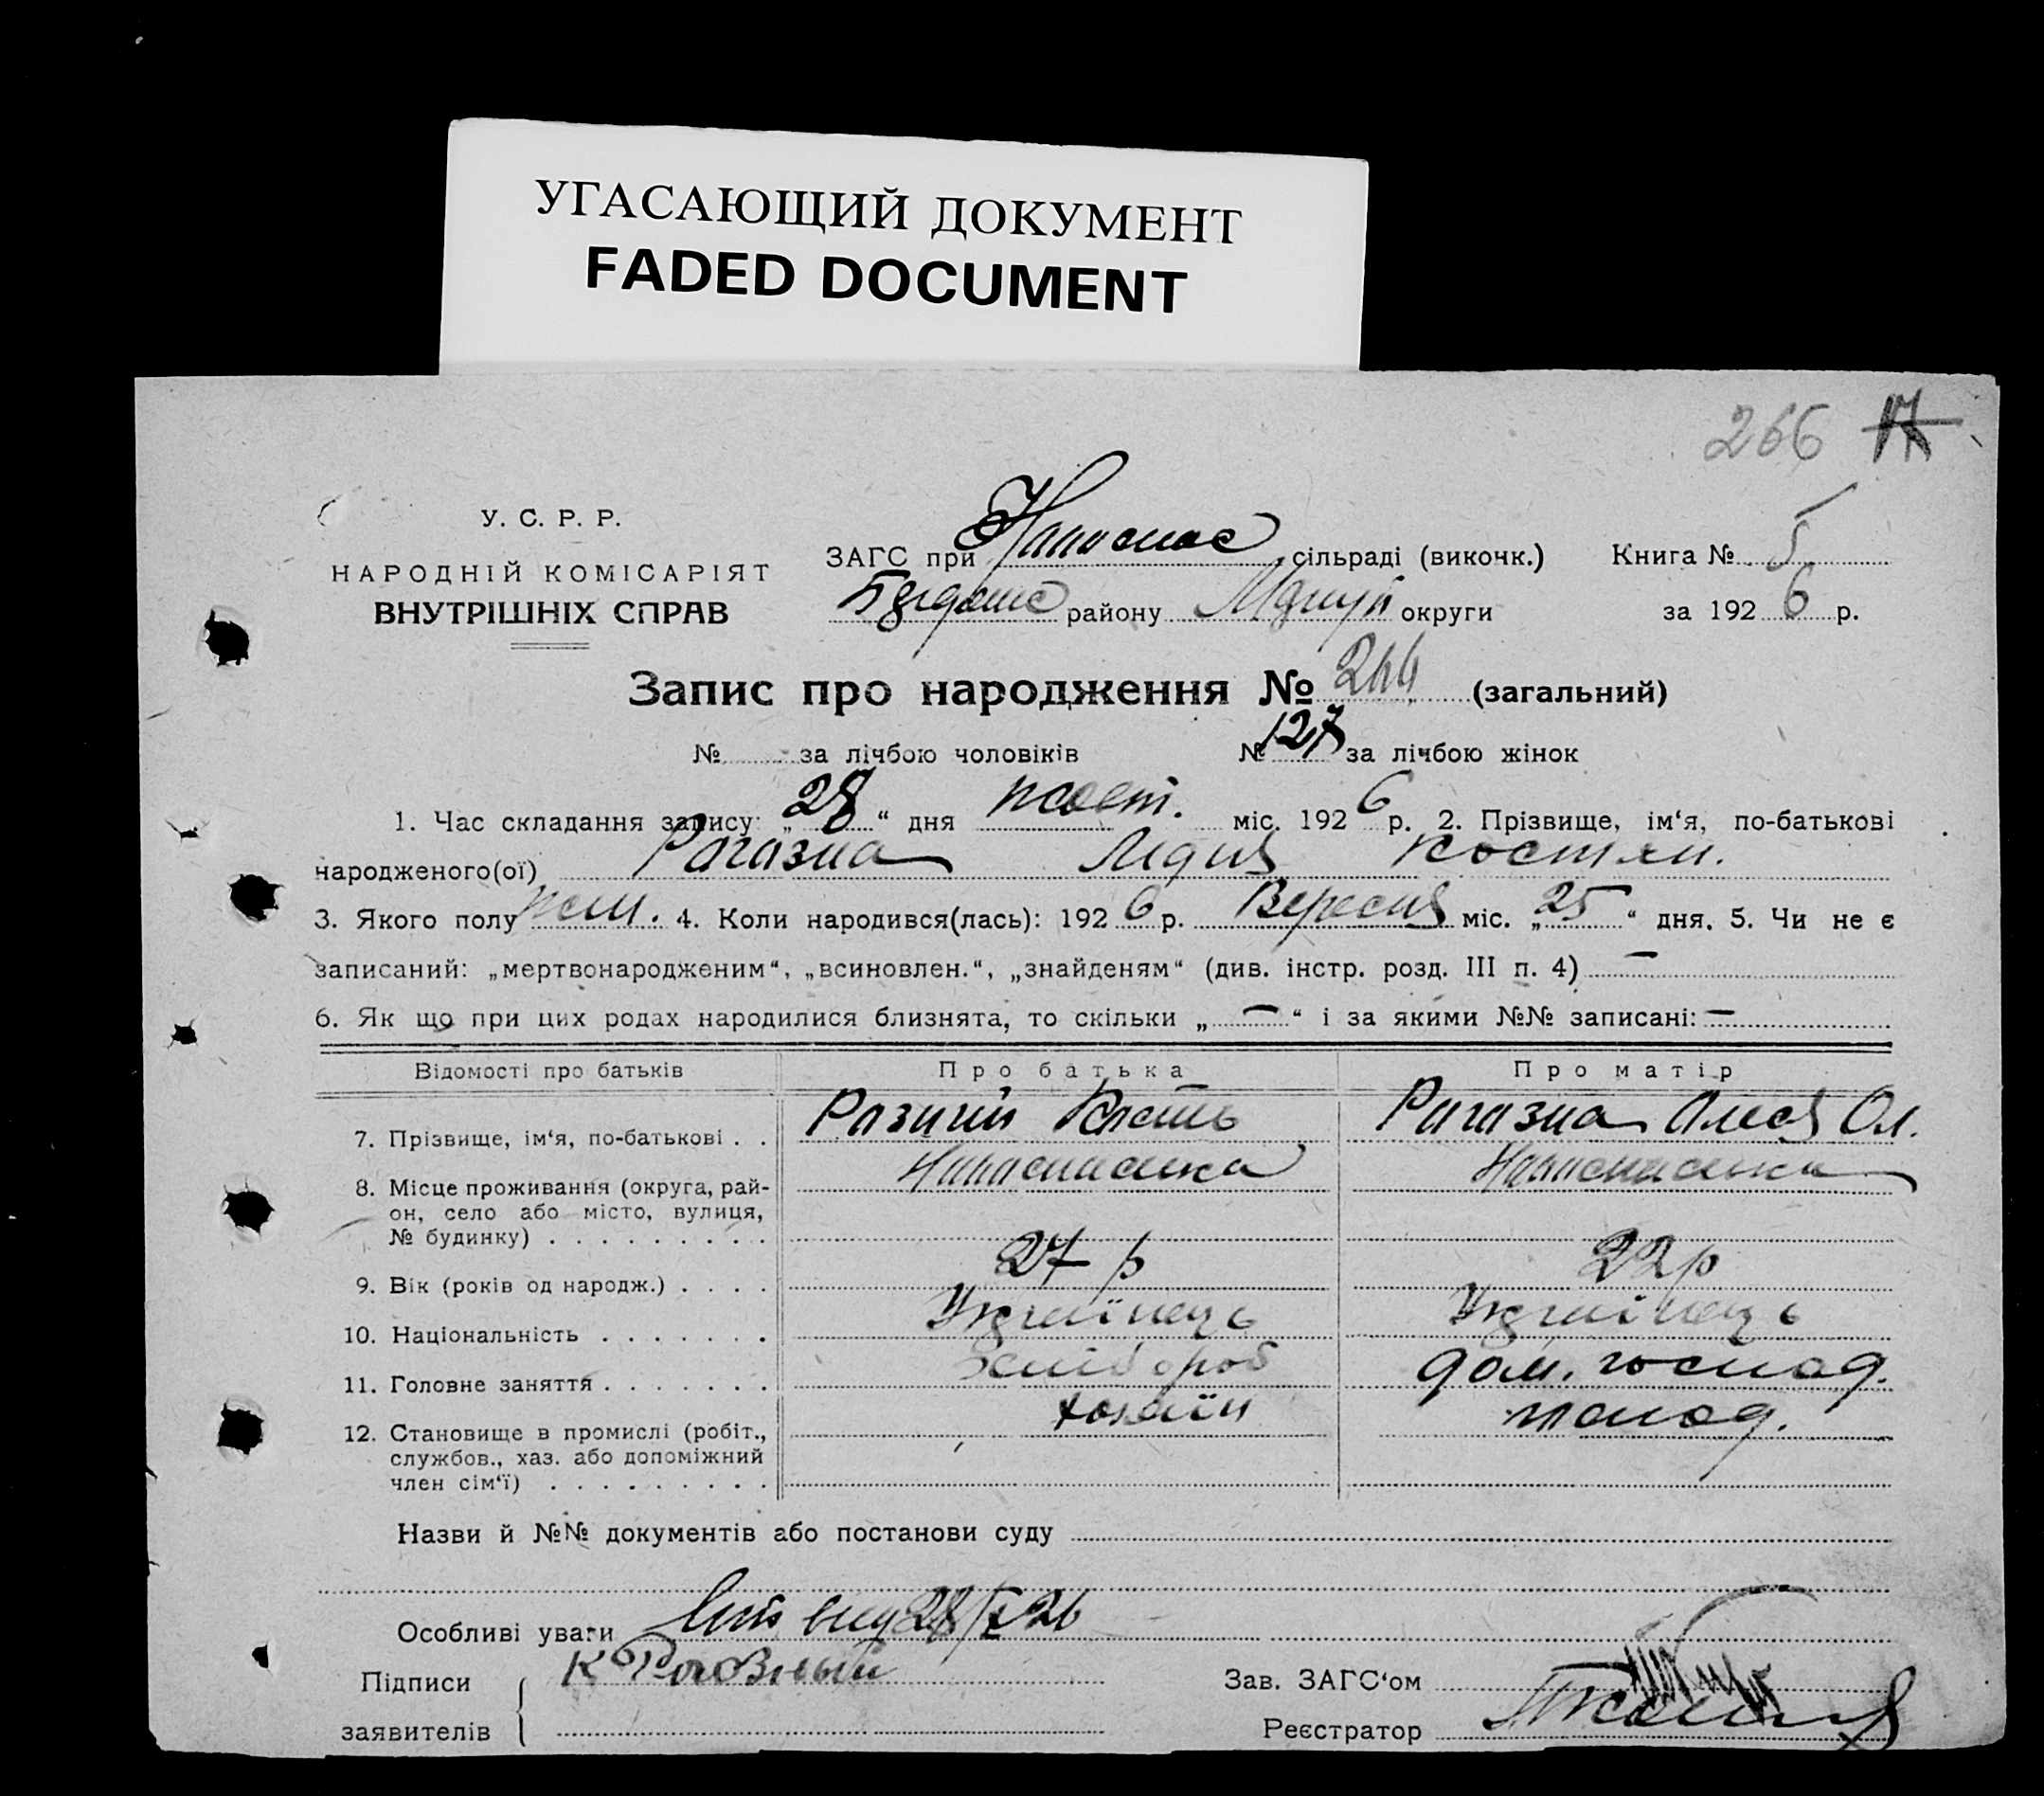 УГАСАЮЩИЙ ДОКУМЕНТ
FADED DOCUMENT
266 17
У. С. Р. Р.
НАРОДНІЙ КОМІСАРІЯТ
ВНУТРІШНІХ СПРАВ
ЗАГС при сільраді (викочк.) Книга № 5
району округи за 1926 р.
Запис про народження № 244 (загальний)
№ за лічбою чоловіків № 127 за лічбою жінок
1. Час складання запису: „28“ дня жовт. міс. 1926 р. 2. Прізвище, ім‘я, по-батькові
народженого(ої) Рагазна Лідія Костян.
3. Якого полу жін. 4. Коли народився(лась): 1926 р. Вересня міс. „25“ дня. 5. Чи не є
записаний: „мертвонародженим“, „всиновлен.“, „знайденям“ (див. інстр. розд. III п. 4) —
6. Як що при цих родах народилися близнята, то скільки „—“ і за якими №№ записані: —
Відомості про батьків Про батька Про матір
7. Прізвище, ім‘я, по-батькові . . Кость Рагазна Ол.
8. Місце проживання (округа, рай-
он, село або місто, вулиця,
№ будинку) . . . . . . . . .
9. Вік (років од народж.) . . . . 27 р 22 р
10. Національність . . . . . . . Українець Українець
11. Головне заняття . . . . . . . Хлібороб дом. господ.
12. Становище в промислі (робіт., хазяїн
службов., хаз. або допоміжний
член сім‘ї) . . . . . . . . .
Назви й №№ документів або постанови суду
Особливі уваги 28/X 26
Підписи К
заявителів
Зав. ЗАГС‘ом
Реєстратор